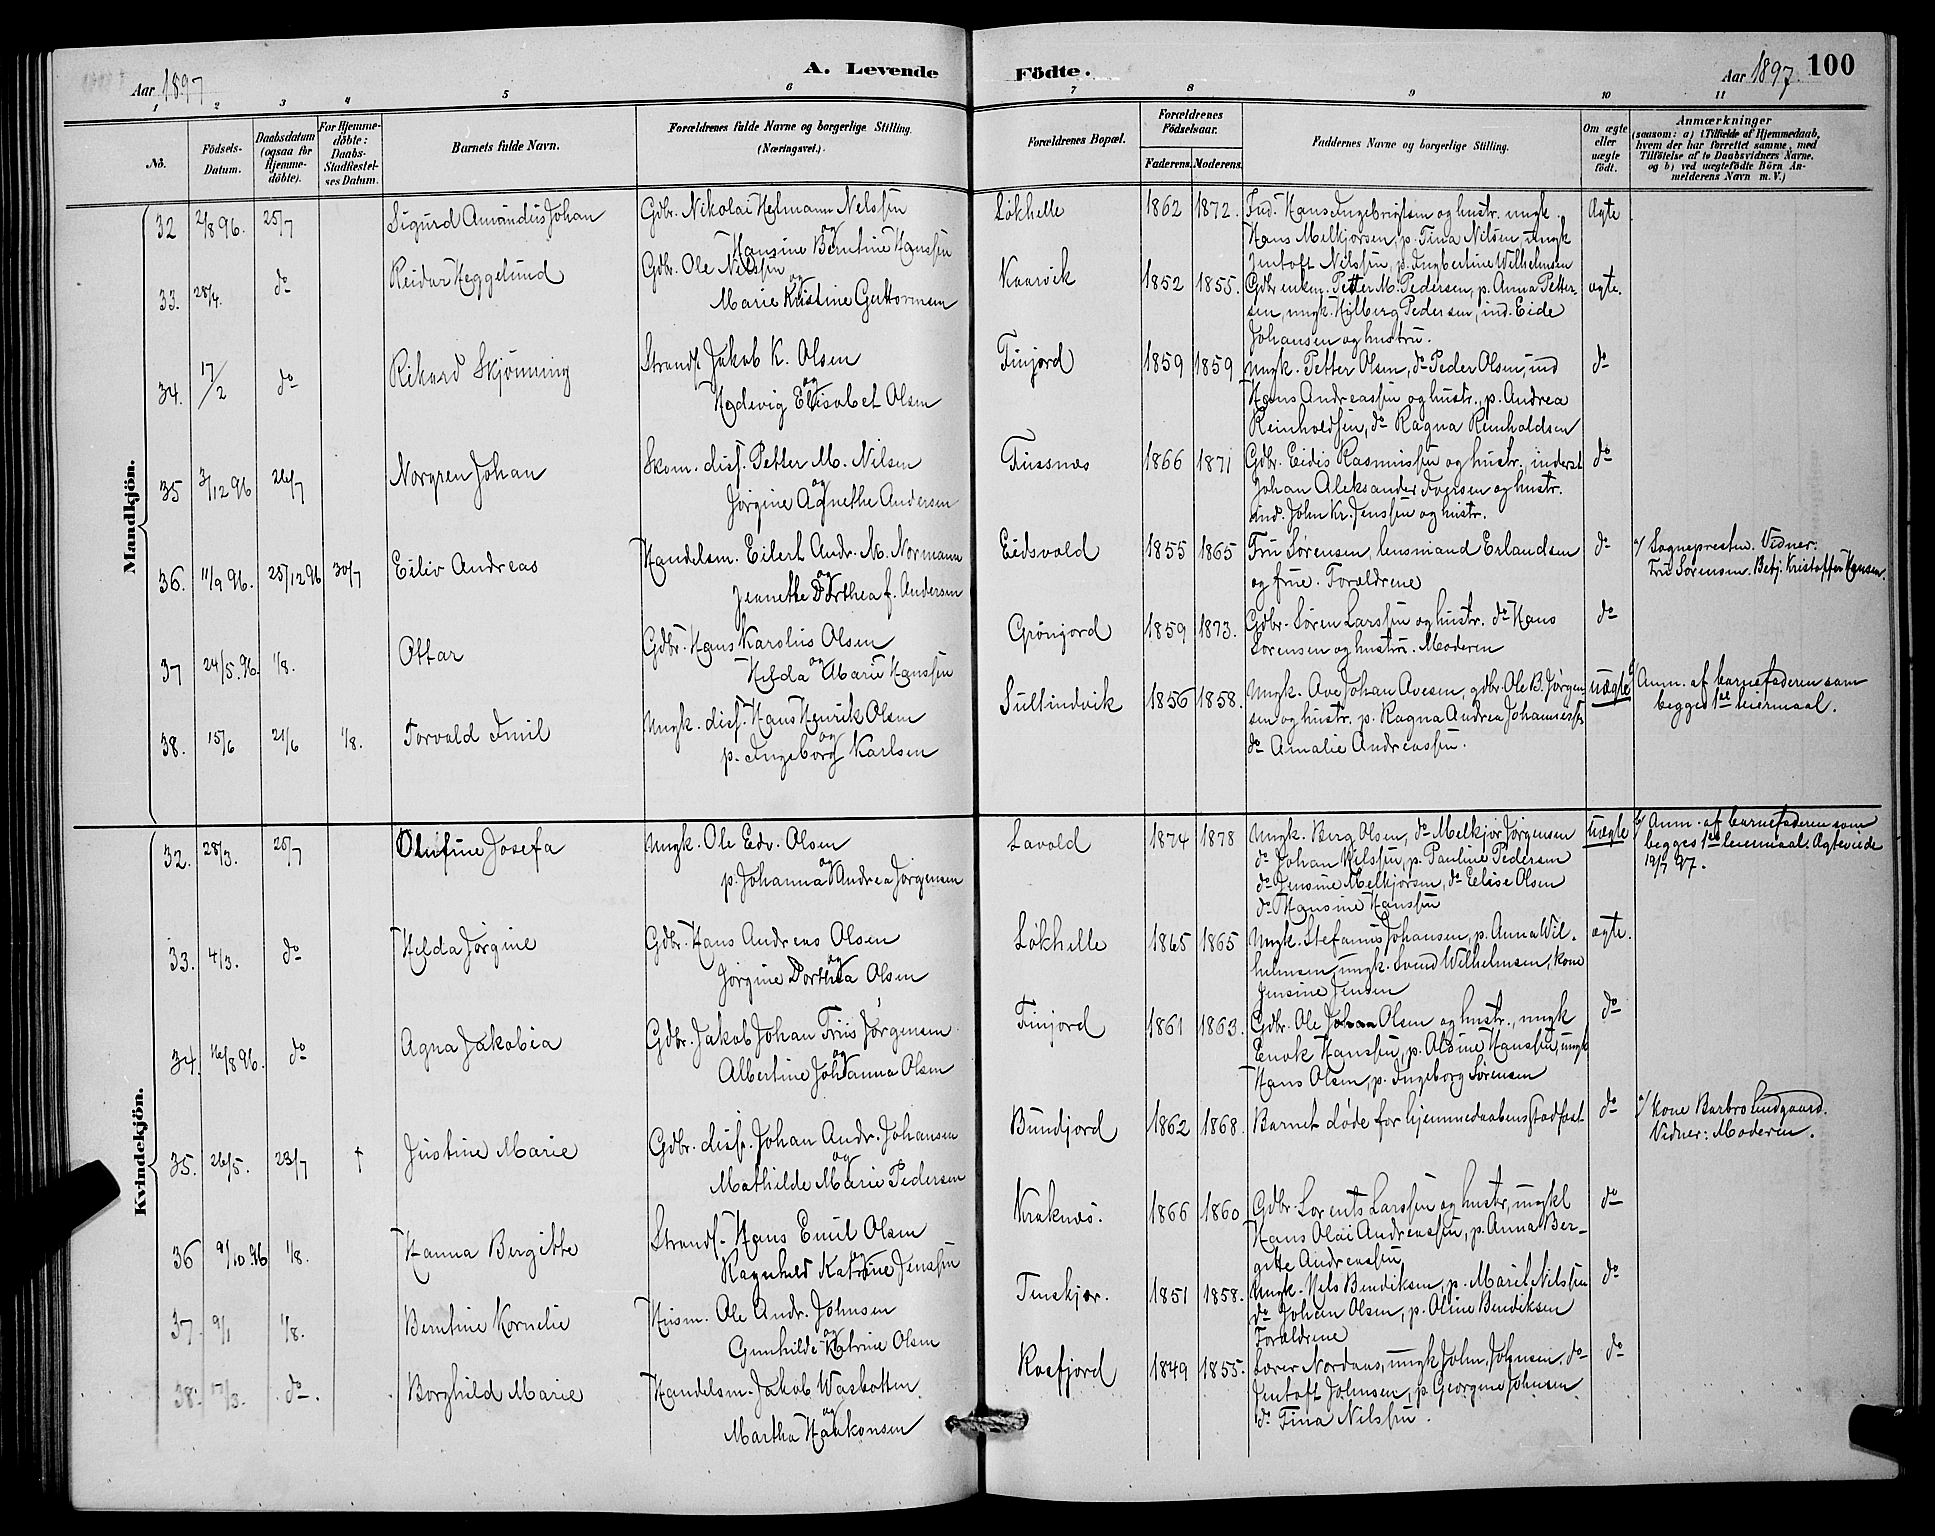 Aar 1897 A. Levende Födte. Aar 1897. 100
1 2 3 4 5 6 7 8 9 10 11
No. Födsels-Datum. Daabsdatum (ogsaa for Hjemme-döbte). For Hjemme-döbte: Daabs-Stadfæstel-ses Datum. Barnets fulde Navn. Forældrenes fulde Navne og borgerlige Stilling. (Næringsvei.) Forældrenes Bopæl. Forældrenes Födselsaar. Faderens. Moderens. Faddernes Navne og borgerlige Stilling. Om ægte eller uægte födt. Anmærkninger (saasom: a) i Tilfælde af Hjemmedaab, hvem der har forrettet samme, med Tilföielse af to Daabsvidners Navne. og b) ved uægtefödte Börn An-melderens Navn m. V.)
Mandkjön.
32 2/8 96. 25/7 Sigurd Amandus Johan Gdbr. Nikolai Helmann Nilssen Løkhelle 1862 1872. Ind. Hans Ingebrigtsen og hustr. ungk. Ægte
og Hansine Berntine Hanssen Hans Melkjorsen, p. Tina Nilsen, ungk
Jentoft Nilssen, p. Ingbertine Wilhelmsen
33. 28/4. do Reidar Heggelund Gdbr. Ole Nilssen Kaarvik 1852 1855. Gdbr enkm. Petter M. Pedersen, p. Anna Petter- ægte.
og Marie Kristine Guttormsen sen, ungk. Hilberg Pedersen, ind. Eide
Johansen og hustru.
34. 17/2 do Rikard Skjønning Strands. Jakob K. Olsen Finjord 1859 1859 Ungk. Petter Olsen, do Peder Olsen, ind do
og Hedevig Elisabet Olsen Hans Andreassen og hustr., p. Andrea
Reinholdsen, do Ragna Reinholdsen
35 3/12 96 26/7 Norgren Johan Skom. diss. Petter M. Nilsen Finsnæs 1866 1871 Gdbr. Eidis Rasmussen og hustr., inderst do
og Jørgine Agnethe Andersen Johan Aleksander Iversen og hustr.
ind. John Kr. Jenssen og hustr.
36. 11/9 96. 25/12 96 30/7 Eiliv Andreas Handelsm. Eilert Andr. M. Normann Eidsvold 1855 1865 Fru Sørensen, lensmand Erlandsen do a/ Sogneprestn. Vidner:
og Jennette Dorthea f. Andersen og frue. Forældrene Fru Sørensen. Betj. Kristoffer Hansen.
37 24/5. 96. 1/8. Ottar Gdbr. Hans Karolius Olsen Grønjord 1859 1873. Gdbr. Søren Larssen og hustr. do Hans do
og Hilda Marie Hanssen Sørensen og hustru. Moderen
38. 15/6 21/6 1/8. Torvald Emil Ungk. diss. Hans Henrik Olsen Sultindvik 1856 1858. Ungk. Ave Johan Avesen, gdbr. Ole B. Jørgen- uægte b/ Anm. af barnefaderen som
og p. Ingeborg Karlsen sen og hustr. p. Ragna Andrea Johannessen begges 1ste leiermaal.
do Amalie Andreassen.
Kvindekjön.
32. 28/3. 25/7 Olufine Josefa Ungk. Ole Edv. Olsen Lavold 1874 1878 Ungk. Berg Olsen, do Melkjor Jørgensen uægte b/ Anm. af barnefaderen som
og p. Johanna Andrea Jørgensen do Johan Nilssen, p. Pauline Pedersen begges 1ste leiermaal. Ægteviede
do Jensine Melkjorsen, do Eelise Olsen 12/9 97.
do Hansine Hanssen
33. 4/3. do Helda Jørgine Gdbr. Hans Andreas Olsen Løkhelle 1865 1865 Ungk. Stefanus Johansen, p. Anna Wil- ægte.
og Jørgine Dorthea Olsen helmsen, ungk. Svend Wilhelmsen, kone
Jensine Jensen
34. 16/8 96. do Agna Jakobia Gdbr. Jakob Johan Friis Jørgensen Finjord 1861 1863. Gdbr. Ole Johan Olsen og hustr., ungk do
og Albertine Johanna Olsen Enok Hanssen, p. Aldine Hanssen, ungk
Hans Olsen, p. Ingeborg Sørensen
35. 26/5. 23/7 † Justine Marie Gdbr. diss. Johan Andr. Johansen Bundjord 1862 1868. Barnet døde før hjemmedaabens stadfæst. do a/ Kone Barbro Lindgaard.
og Mathilde Marie Pedersen Vidner: Moderen.
36 9/10. 96 1/8. Hanna Bergitte Strands. Hans Emil Olsen Kraknæs. 1866 1860 Gdbr. Lorents Larssen og hustr, ungkl do
og Ragnhild Katrine Jenssen Hans Olai Andreassen, p. Anna Ber-
gitte Andreassen
37. 9/1 1/8. Berntine Kornelie Husm. Ole Andr. Johnsen Finskjær. 1851 1858. Ungk. Nils Bendiksen, p. Marit Nilssen do
og Gunhilde Katrine Olsen do Johan Olsen, p. Oline Bendiksen
Forældrene
38. 17/3. do. Borghild Marie Handelsm. Jakob Wasbotten Rosfjord 1849 1855. Lærer Nordaas, ungk. John Johnsen, do do
og Martha Haakonsen Jentoft Johnsen, p. Georgine Johnsen
do Tina Nilssen.